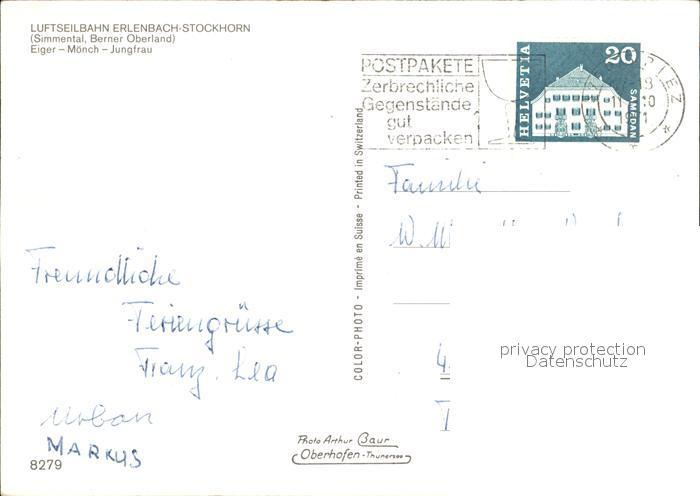 LUFTSEILBAHN ERLENBACH-STOCKHORN
(Simmental, Berner Oberland)
Eiger – Mönch – Jungfrau
POSTPAKETE
Zerbrechliche
Gegenstände
gut
verpacken
HELVETIA
20
SAMEDAN
SPIEZ
COLOR-PHOTO - Imprimé en Suisse - Printed in Switzerland
Familie
W.
Freundliche
Feriengrüsse
Franz. Lea
Urban
MARKUS
8279
Photo Arthur Baur
Oberhofen - Thunersee
privacy protection
Datenschutz